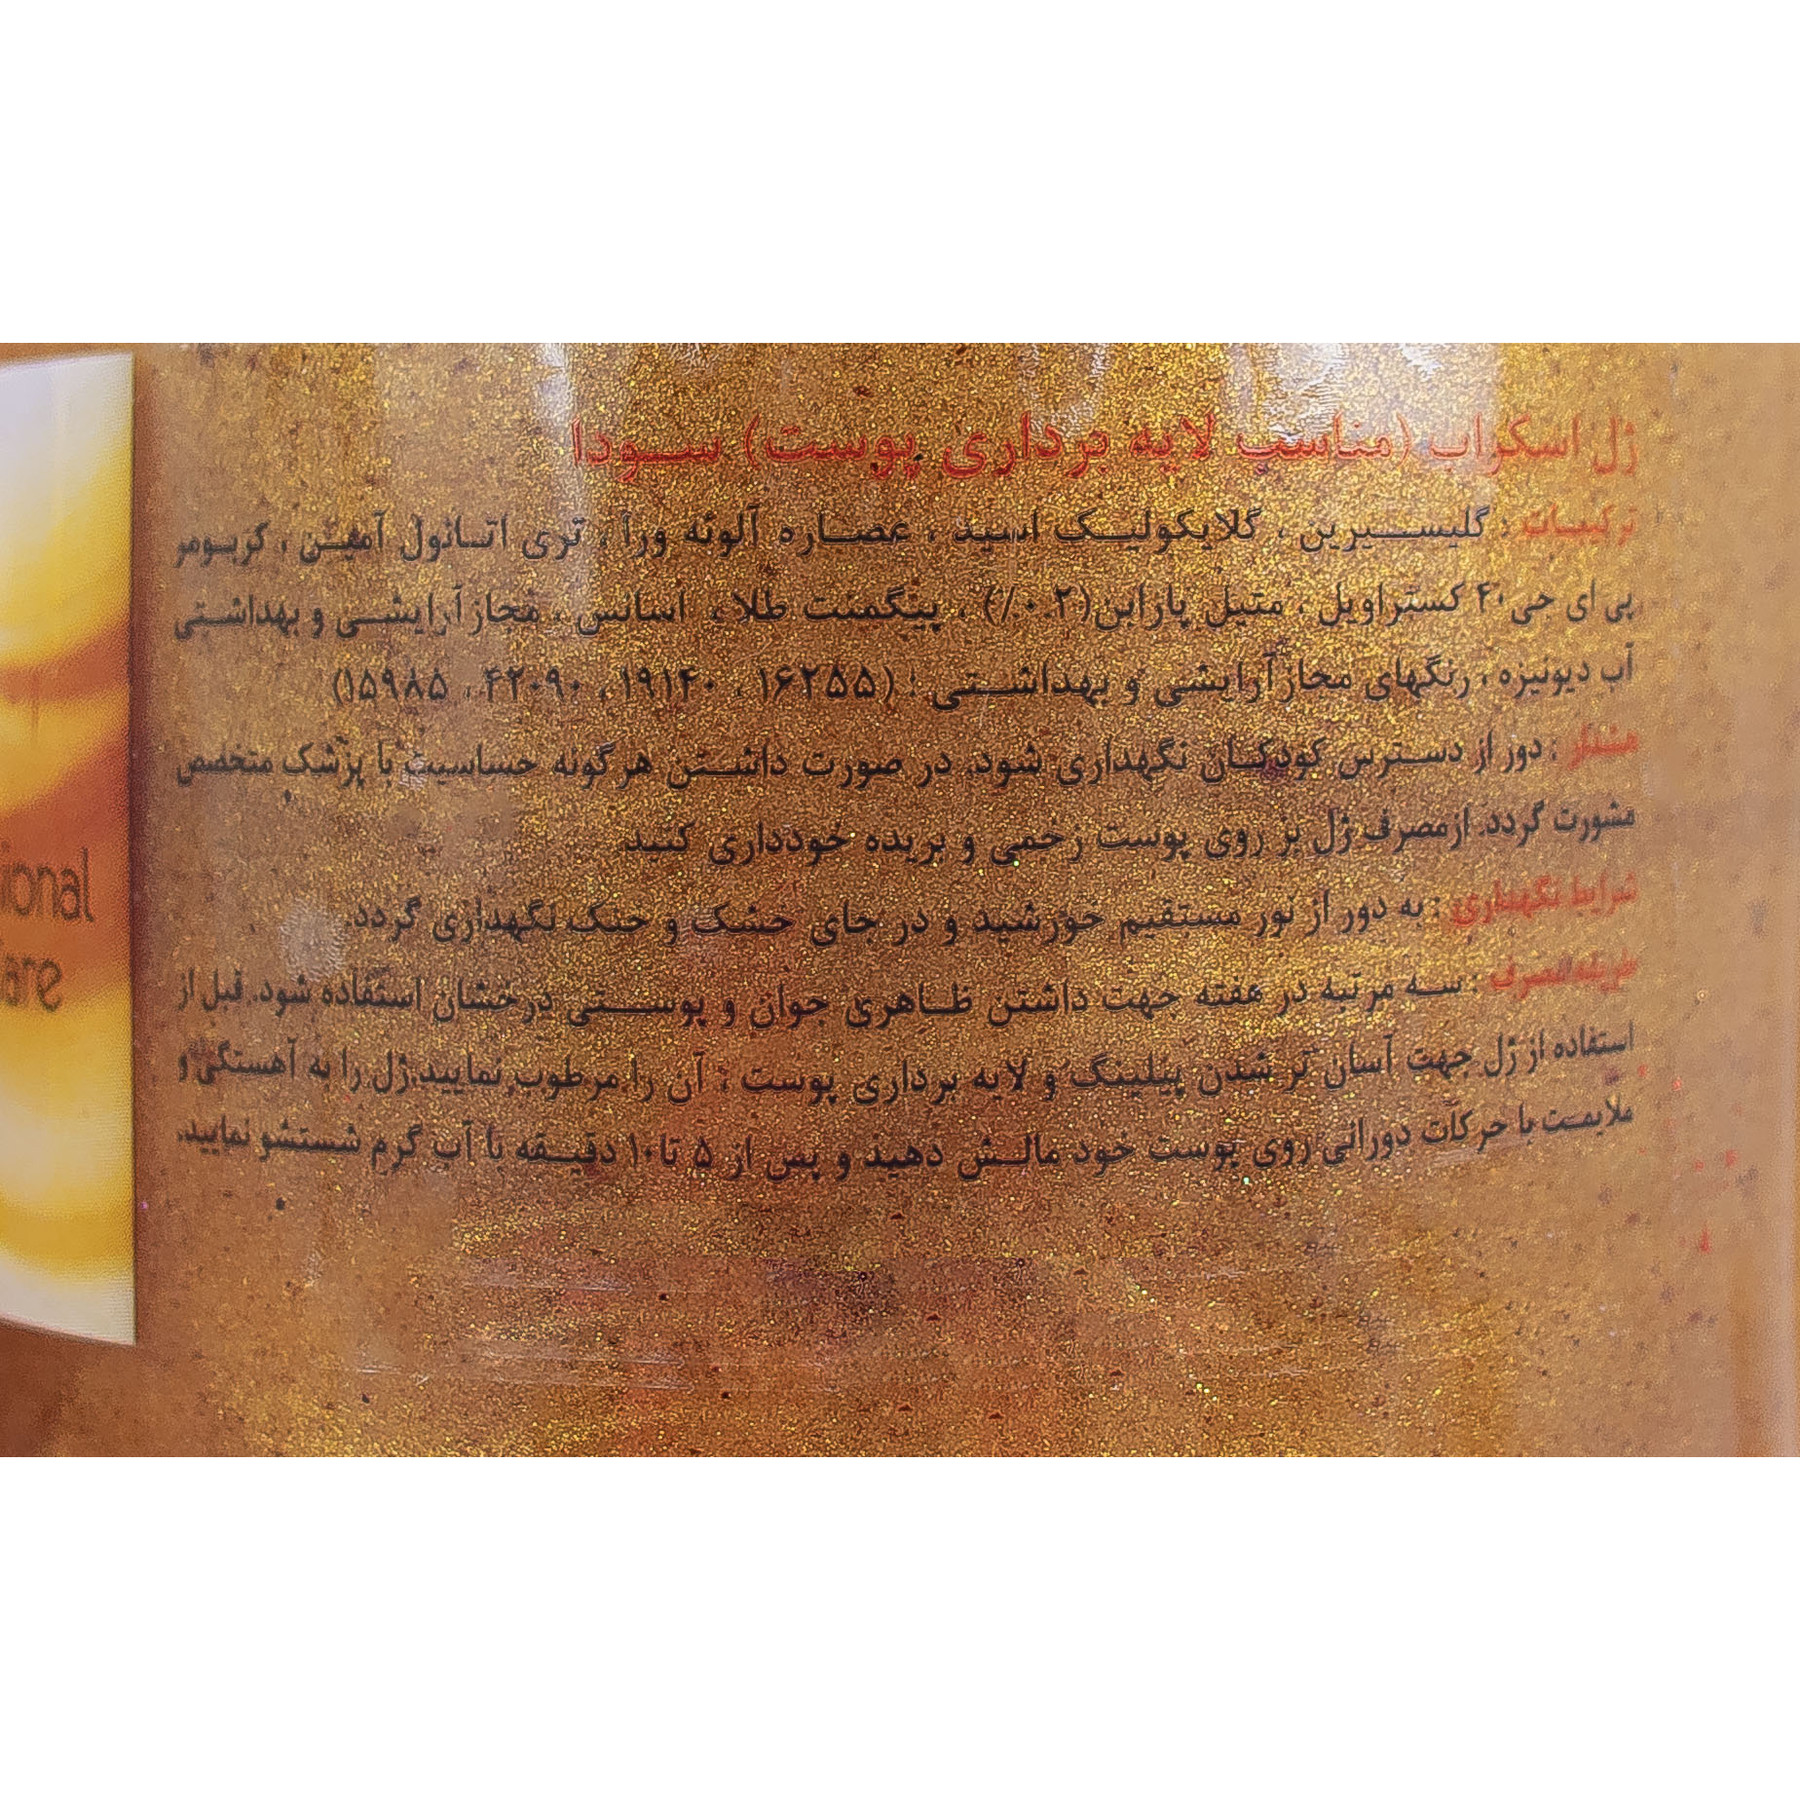 ژل اسکراب (مناسب لایه برداری پوست) سودا
ترکیبات : گلیسیرین ، گلایکولیک اسید ، عصاره آلوئه ورا ، تری اتانول آمین ، کربومر
پی ای جی ۴۰ کستراویل ، متیل پارابن(۰.۲٪) ، پیگمنت طلا ، اسانس ، مجاز آرایشی و بهداشتی
آب دیونیزه ، رنگهای مجاز آرایشی و بهداشتی : (۱۶۲۵۵ ، ۱۹۱۴۰ ، ۴۲۰۹۰ ، ۱۵۹۸۵)
هشدار : دور از دسترس کودکان نگهداری شود. در صورت داشتن هرگونه حساسیت با پزشک متخصص
مشورت گردد. ازمصرف ژل بر روی پوست زخمی و بریده خودداری کنید
شرایط نگهداری : به دور از نور مستقیم خورشید و در جای خشک و خنک نگهداری گردد.
طریقه مصرف : سه مرتبه در هفته جهت داشتن ظاهری جوان و پوستی درخشان استفاده شود. قبل از
استفاده از ژل جهت آسان تر شدن پیلینگ و لایه برداری پوست : آن را مرطوب نمایید.ژل را به آهستگی و
ملایمت با حرکات دورانی روی پوست خود مالش دهید و پس از ۵ تا ۱۰ دقیقه با آب گرم شستشو نمایید.
ional
are